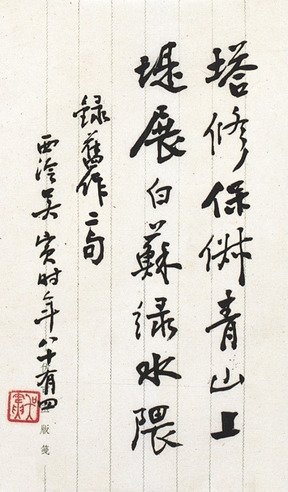 塔修保俶青山上
堤展白蘇綠水隈
錄舊作二句
西泠吴寅时年八十有四
版箋